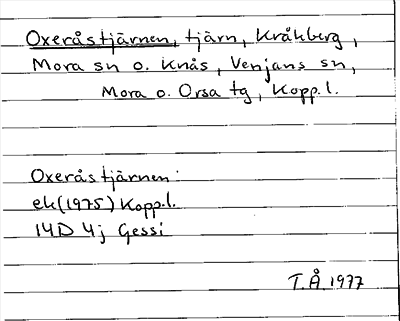 Oxeråstjärnen, tjärn, Kråkberg,
Mora sn o. Knås, Venjans sn,
Mora o. Orsa tg, Kopp.l.
Oxeråstjärnen:
ek(1975) Kopp.l.
14D 4j Gessi
T.Å. 1977